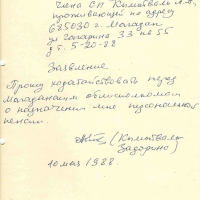 члена СП Кымытваль А.А.,
проживающей по адресу
685030 г. Магадан
ул Гагарина 33 кв 55
д т. 5-20-88
Заявление
Прошу ходатайствовать перед
Магаданским облисполкомом
о назначении мне персональной
пенсии.
(Кымытваль
Задорино)
10 мая 1988